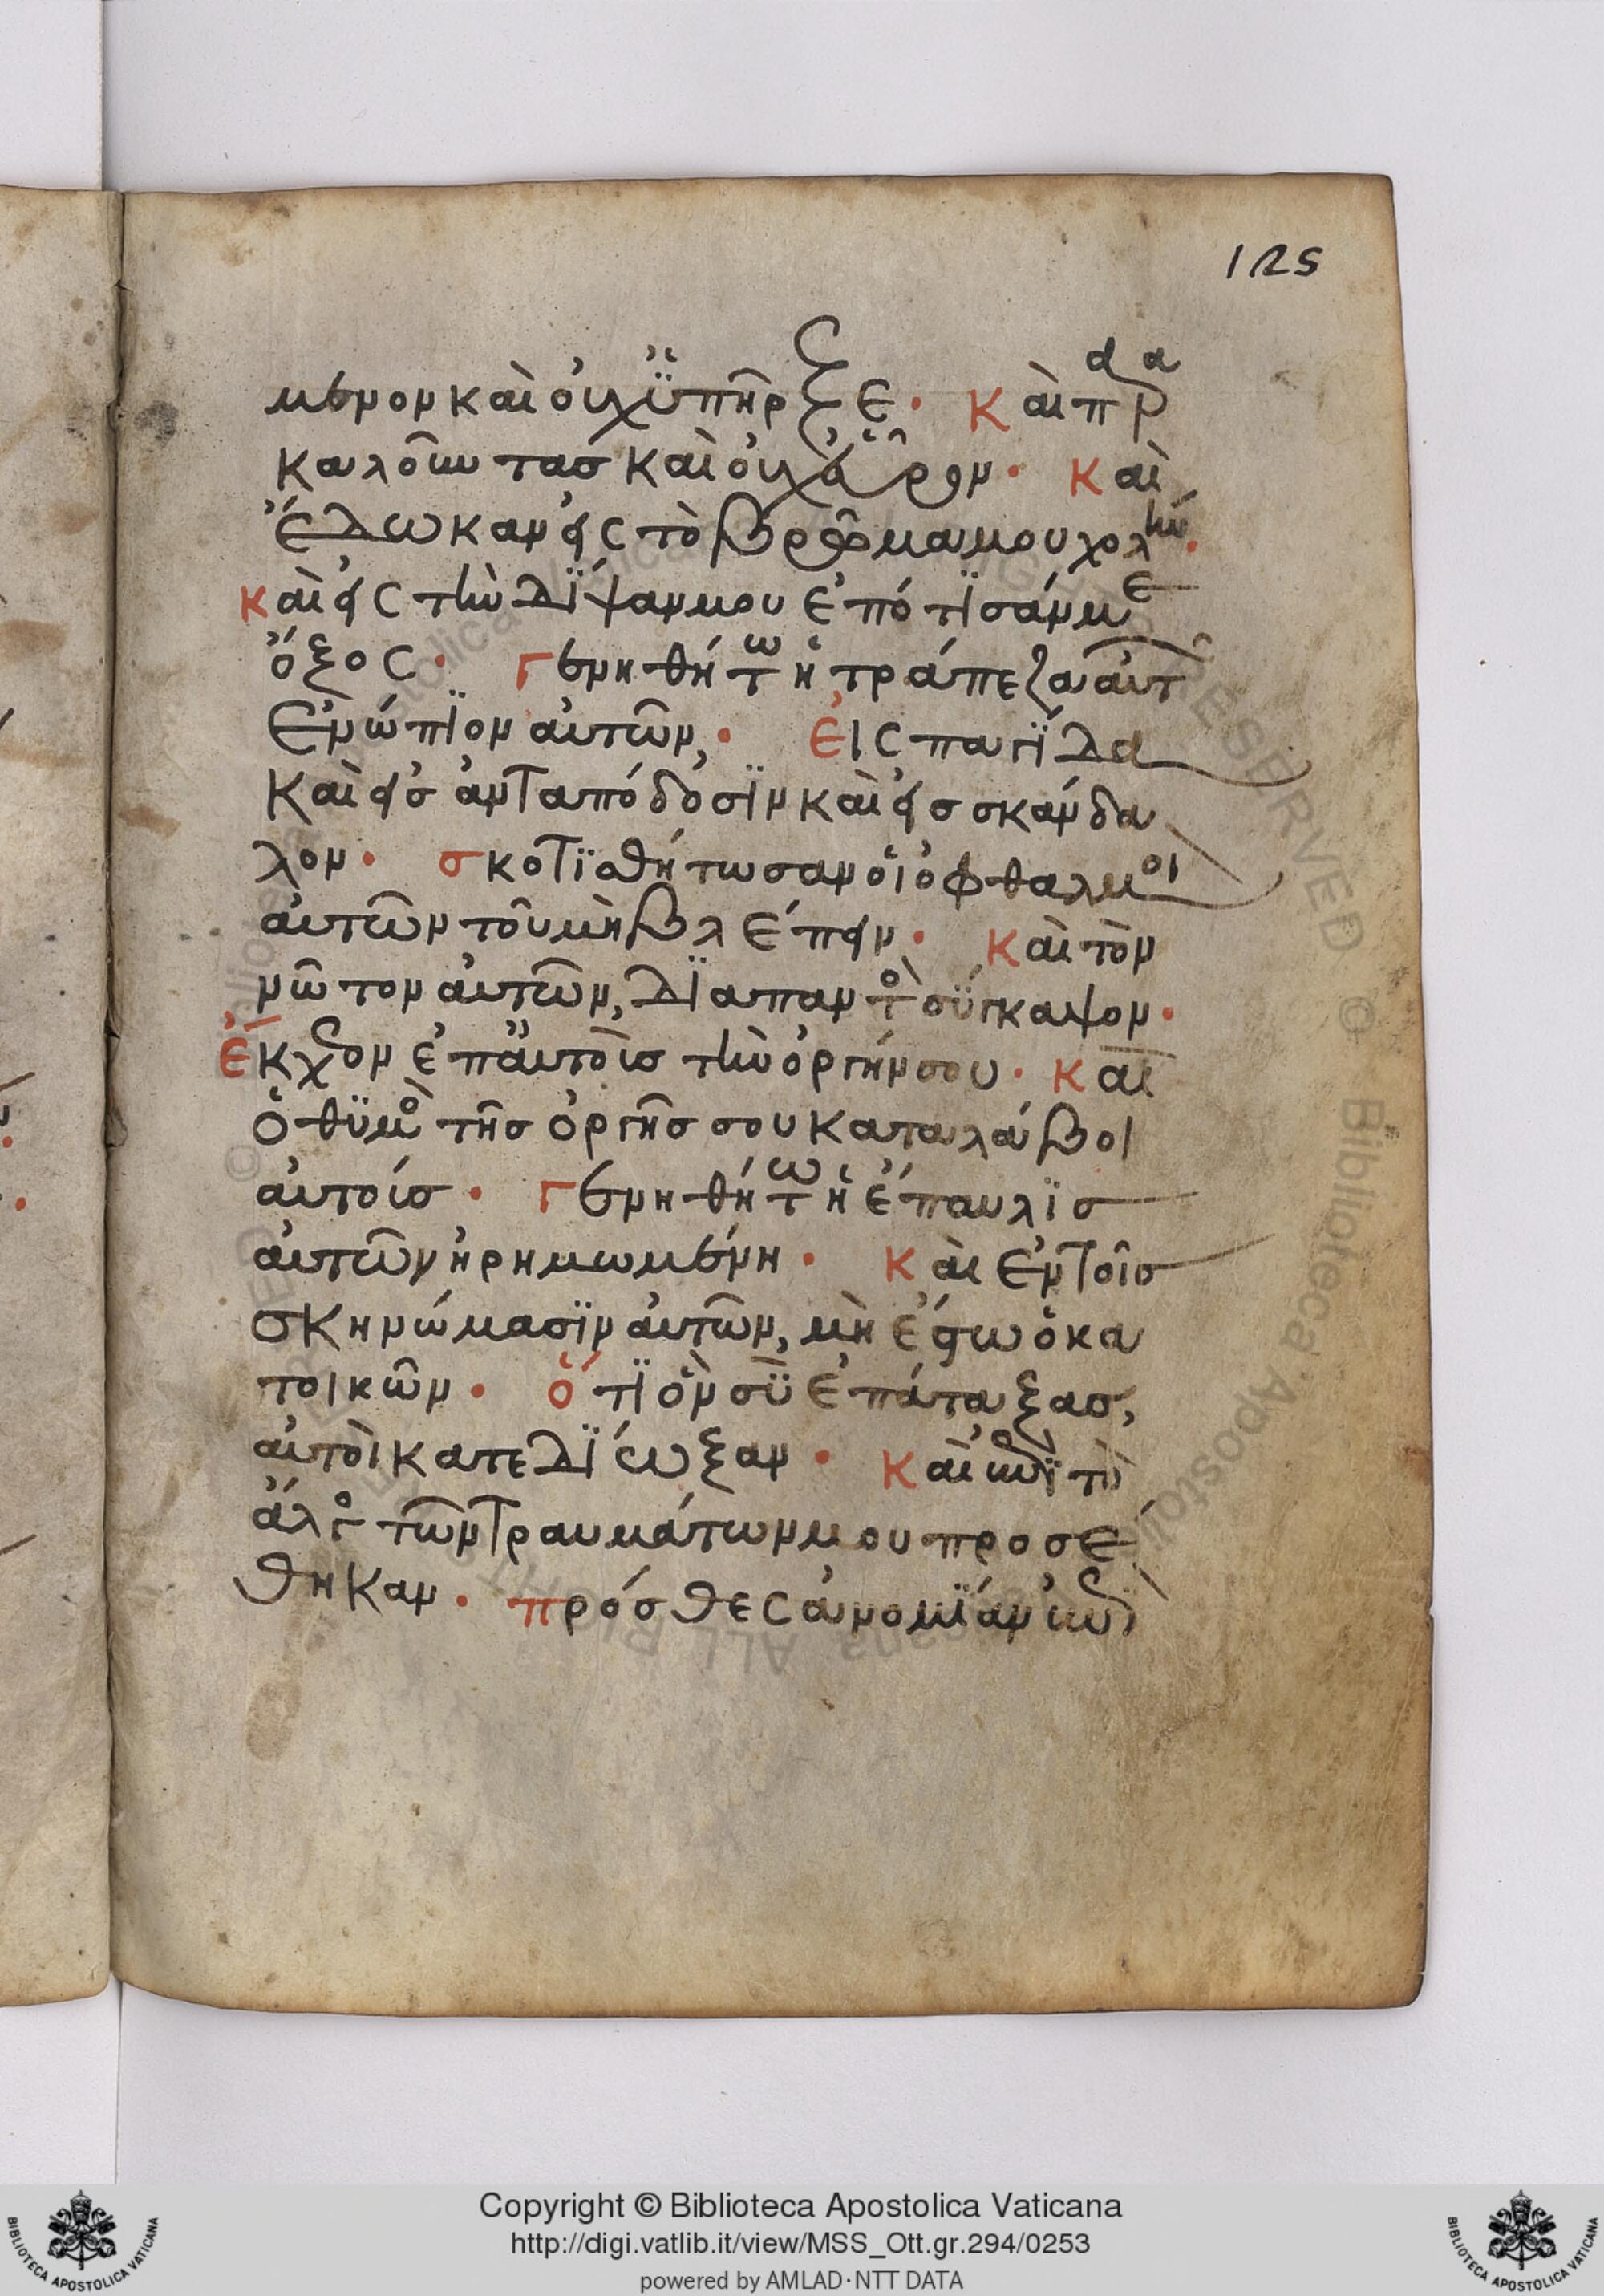 125
μενον καὶ οὐχ ὑπῆρξε· Καὶ παρα
καλοῦντας καὶ οὐχ εὗρον· Καὶ
ἔδωκαν εἰς τὸ βρῶμα μου χολήν·
καὶ εἰς τὴν δίψαν μου ἐπότισάν με
ὄξος· Γενηθήτω ἡ τράπεζα αὐτῶν
ἐνώπιον αὐτῶν, · Εἰς παγίδα
Καὶ εἰς ἀνταπόδοσιν καὶ εἰς σκάνδα
λον· σκοτισθήτωσαν οἱ ὀφθαλμοὶ
αὐτῶν τοῦ μὴ βλέπειν· Καὶ τὸν
νῶτον αὐτῶν, διαπαντὸς σύγκαψον·
Ἔκχεον ἐπ' αὐτοὺς τὴν ὀργήν σου· Καὶ
ὁ θυμὸς τῆς ὀργῆς σου καταλάβοι
αὐτοίς· Γενηθήτω ἡ ἔπαυλις
αὐτῶν ἠρημωμένη· Καὶ ἐν τοῖς
σκηνώμασιν αὐτῶν, μὴ ἔστω ὁ κα
τοικῶν· ὅτι ὃν σὺ ἐπάταξας,
αὐτοὶ κατεδίωξαν· Καὶ ἐπὶ τὸ
ἄλγος τῶν τραυμάτων μου προσέ
θηκαν· πρόσθες ἀνομίαν ἐπὶ
Copyright © Biblioteca Apostolica Vaticana
http://digi.vatlib.it/view/MSS_Ott.gr.294/0253
powered by AMLAD·NTT DATA
BIBLIOTECA APOSTOLICA VATICANA
BIBLIOTECA APOSTOLICA VATICANA